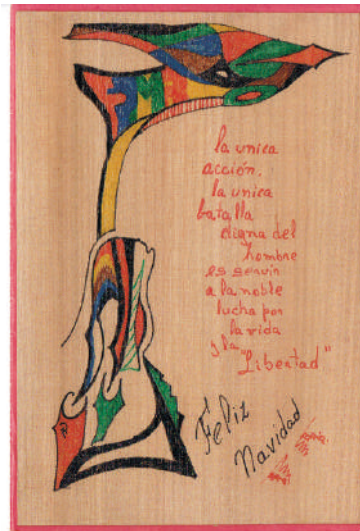 la unica
acción,
la unica
batalla
digna del
hombre
es servir
a la noble
lucha por
la vida
y la "Libertad"
Feliz
Navidad